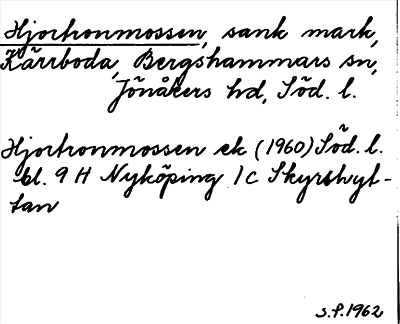 Hjortronmossen, sank mark,
Kärrboda, Bergshammars sn,
Jönåkers hd, Söd. l.
Hjortronmossen ek (1960) Söd. l.
bl. 9 H Nyköping 1 c Skyrshyt-
tan
s.f. 1962